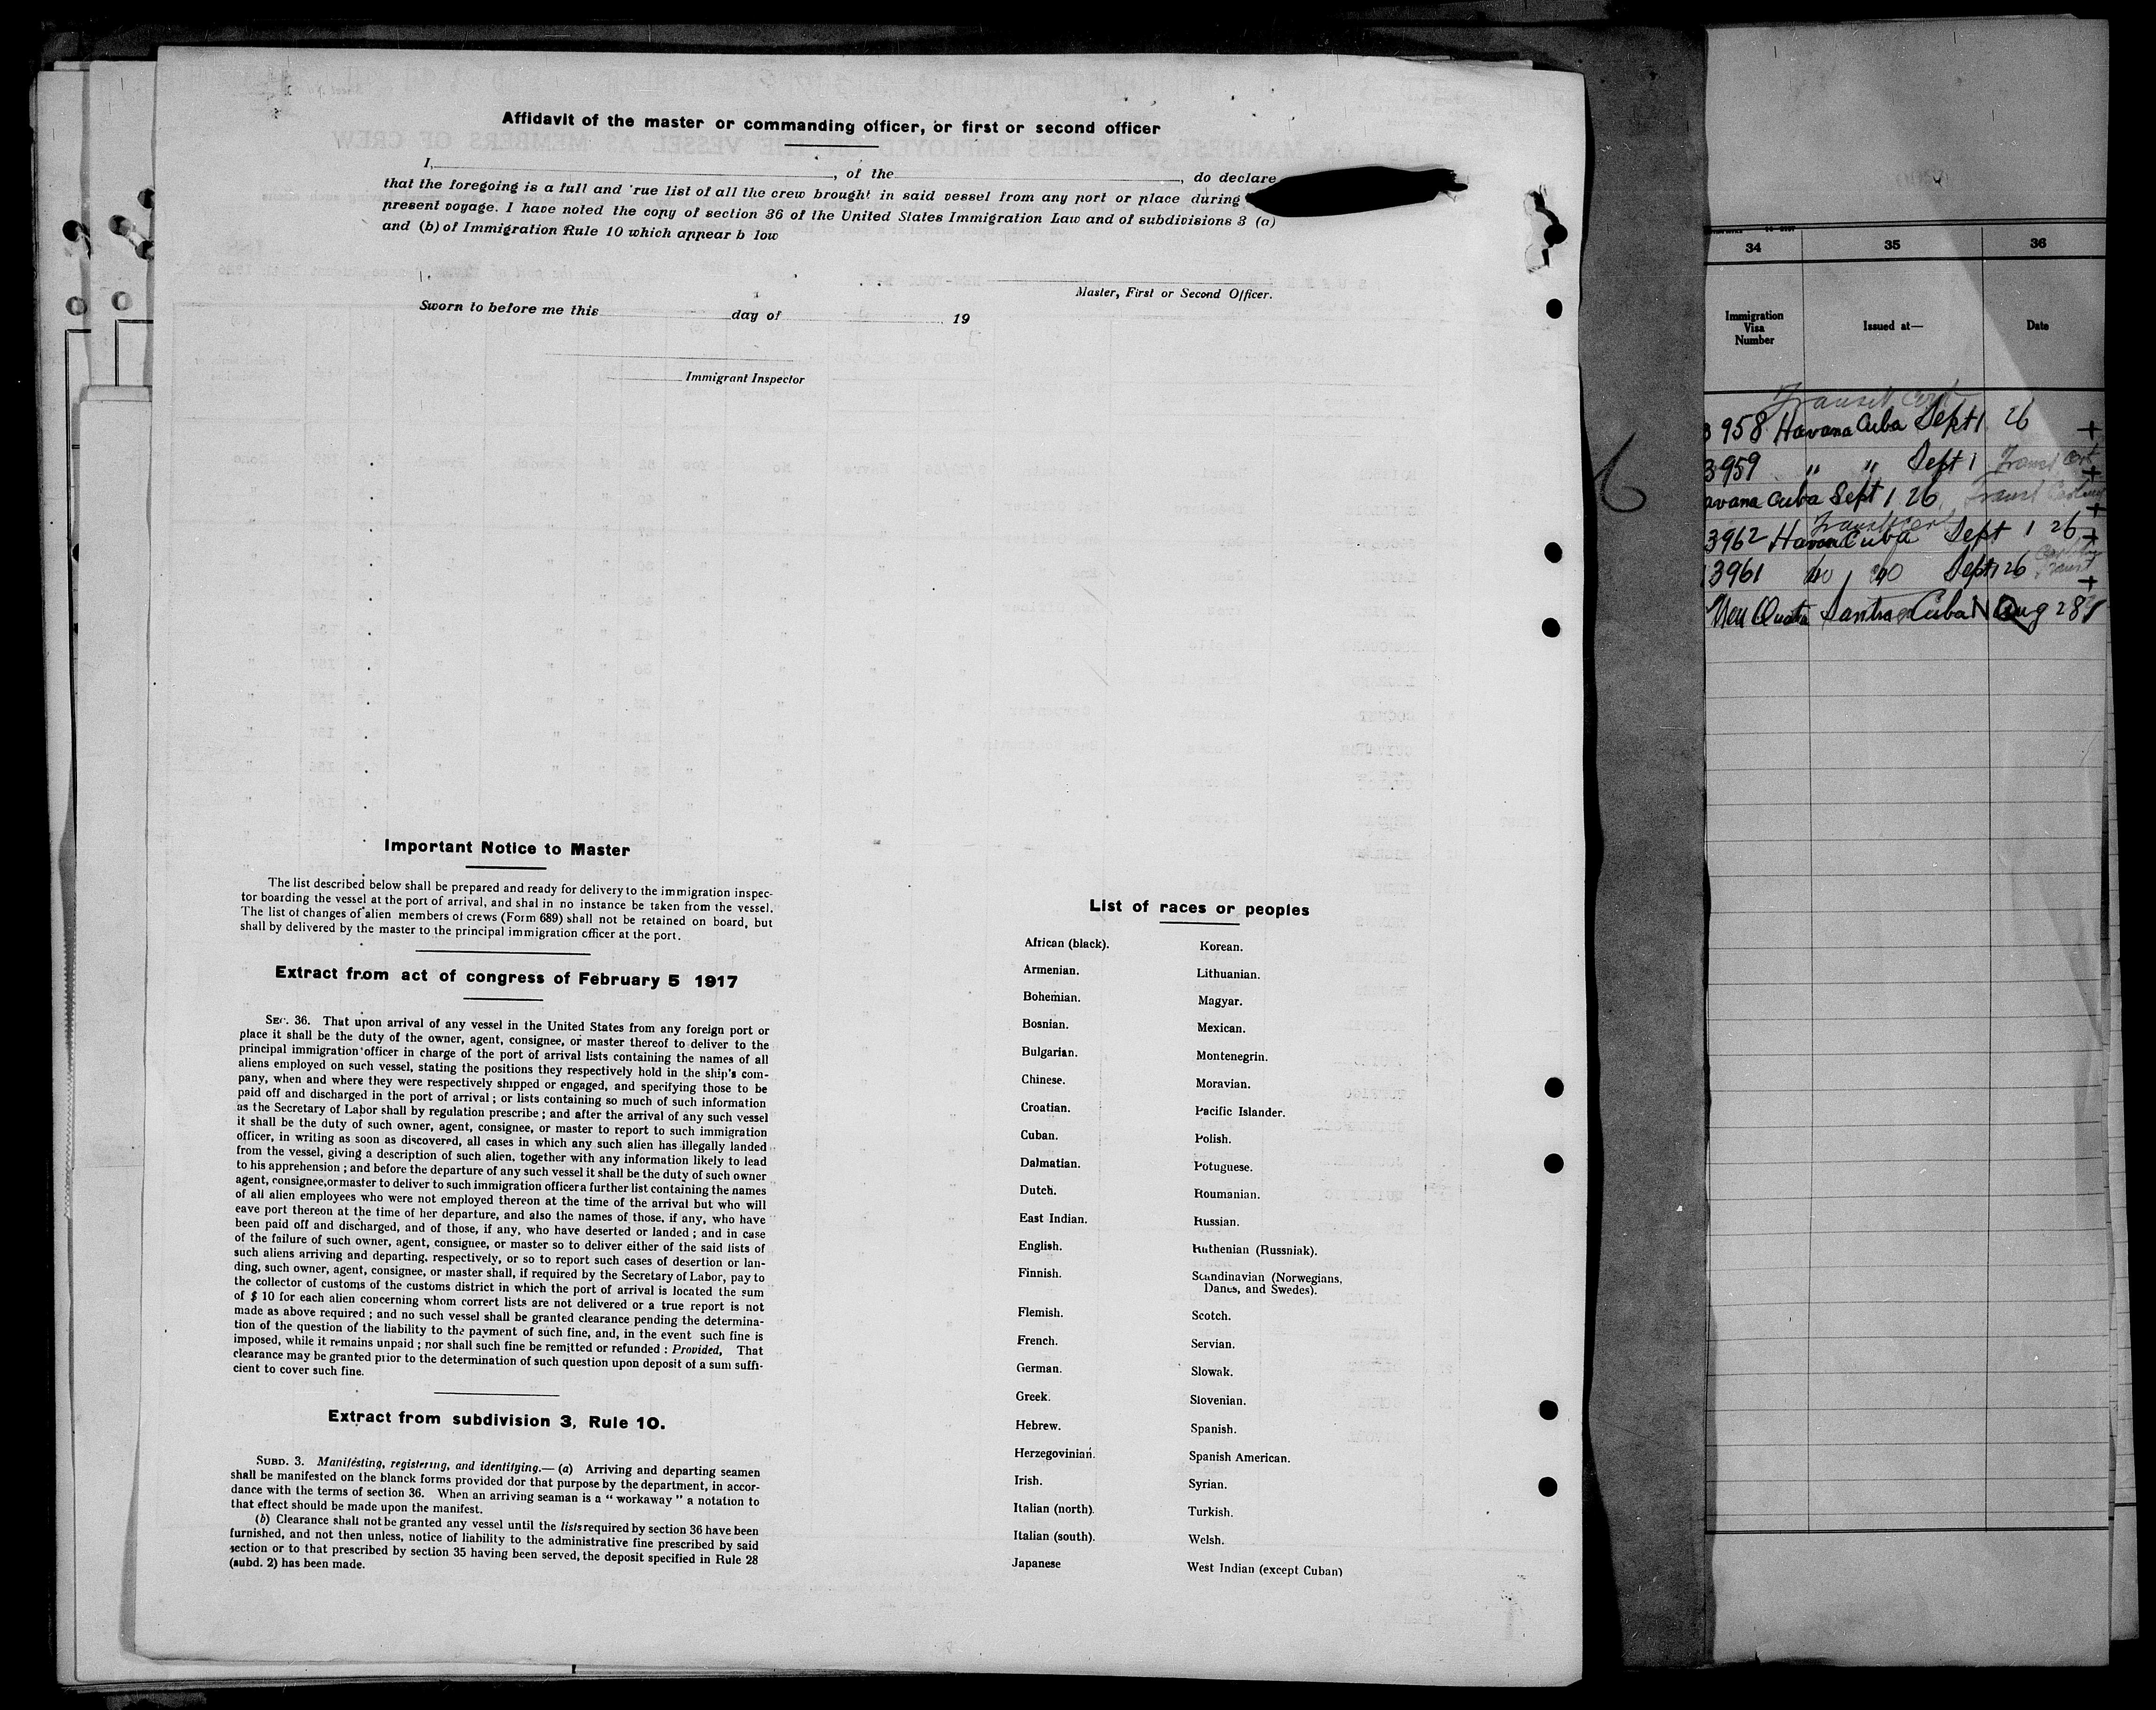 Affidavit of the master or commanding officer, or first or second officer
I, , of the , do declare
that the foregoing is a full and 'rue list of all the crew brought in said vessel from any port or place during
present voyage. I have noted the copy of section 36 of the United States Immigration Law and of subdivisions 3 (a)
and (b) of Immigration Rule 10 which appear b low
Master, First or Second Officer.
Sworn to before me this day of 19
Immigrant Inspector
Important Notice to Master
The list described below shall be prepared and ready for delivery to the immigration inspec-
tor boarding the vessel at the port of arrival, and shal in no instance be taken from the vessel.
The list of changes of alien members of crews (Form 689) shall not be retained on board, but
shall by delivered by the master to the principal immigration officer at the port.
Extract from act of congress of February 5 1917
SEC. 36. That upon arrival of any vessel in the United States from any foreign port or
place it shall be the duty of the owner, agent, consignee, or master thereof to deliver to the
principal immigration officer in charge of the port of arrival lists containing the names of all
aliens employed on such vessel, stating the positions they respectively hold in the ship's com-
pany, when and where they were respectively shipped or engaged, and specifying those to be
paid off and discharged in the port of arrival ; or lists containing so much of such information
as the Secretary of Labor shall by regulation prescribe ; and after the arrival of any such vessel
it shall be the duty of such owner, agent, consignee, or master to report to such immigration
officer, in writing as soon as discovered, all cases in which any such alien has illegally landed
from the vessel, giving a description of such alien, together with any information likely to lead
to his apprehension ; and before the departure of any such vessel it shall be the duty of such owner
agent, consignee, or master to deliver to such immigration officer a further list containing the names
of all alien employees who were not employed thereon at the time of the arrival but who will
eave port thereon at the time of her departure, and also the names of those, if any, who have
been paid off and discharged, and of those, if any, who have deserted or landed ; and in case
of the failure of such owner, agent, consignee, or master so to deliver either of the said lists of
such aliens arriving and departing, respectively, or so to report such cases of desertion or lan-
ding, such owner, agent, consignee, or master shall, if required by the Secretary of Labor, pay to
the collector of customs of the customs district in which the port of arrival is located the sum
of $ 10 for each alien concerning whom correct lists are not delivered or a true report is not
made as above required ; and no such vessel shall be granted clearance pending the determina-
tion of the question of the liability to the payment of such fine, and, in the event such fine is
imposed, while it remains unpaid ; nor shall such fine be remitted or refunded : Provided, That
clearance may be granted prior to the determination of such question upon deposit of a sum suffi-
cient to cover such fine.
Extract from subdivision 3, Rule 10.
SUBD. 3. Manifesting, registering, and identifying.— (a) Arriving and departing seamen
shall be manifested on the blanck forms provided dor that purpose by the department, in accor-
dance with the terms of section 36. When an arriving seaman is a " workaway " a notation to
that effect should be made upon the manifest.
(b) Clearance shall not be granted any vessel until the lists required by section 36 have been
furnished, and not then unless, notice of liability to the administrative fine prescribed by said
section or to that prescribed by section 35 having been served, the deposit specified in Rule 28
(subd. 2) has been made.
List of races or peoples
African (black).
Armenian.
Bohemian.
Bosnian.
Bulgarian.
Chinese.
Croatian.
Cuban.
Dalmatian.
Dutch.
East Indian.
English.
Finnish.
Flemish.
French.
German.
Greek.
Hebrew.
Herzegovinian.
Irish.
Italian (north).
Italian (south).
Japanese
Korean.
Lithuanian.
Magyar.
Mexican.
Montenegrin.
Moravian.
Pacific Islander.
Polish.
Potuguese.
Roumanian.
Russian.
Ruthenian (Russniak).
Scandinavian (Norwegians,
Danes, and Swedes).
Scotch.
Servian.
Slowak.
Slovenian.
Spanish.
Spanish American.
Syrian.
Turkish.
Welsh.
West Indian (except Cuban)
34 35 36
Immigration
Visa
Number
Issued at—
Date
Transit Cert
3958 Havana Cuba Sept 1 26 +
3959 " " Sept 1 Transit Cert +
avana Cuba Sept 1 26 Transit +
Transit Cert
3962 Havana Cuba Sept 1 26 +
3961 do do Sept 1 26 Transit +
Non Quota Cuba Aug 28
6